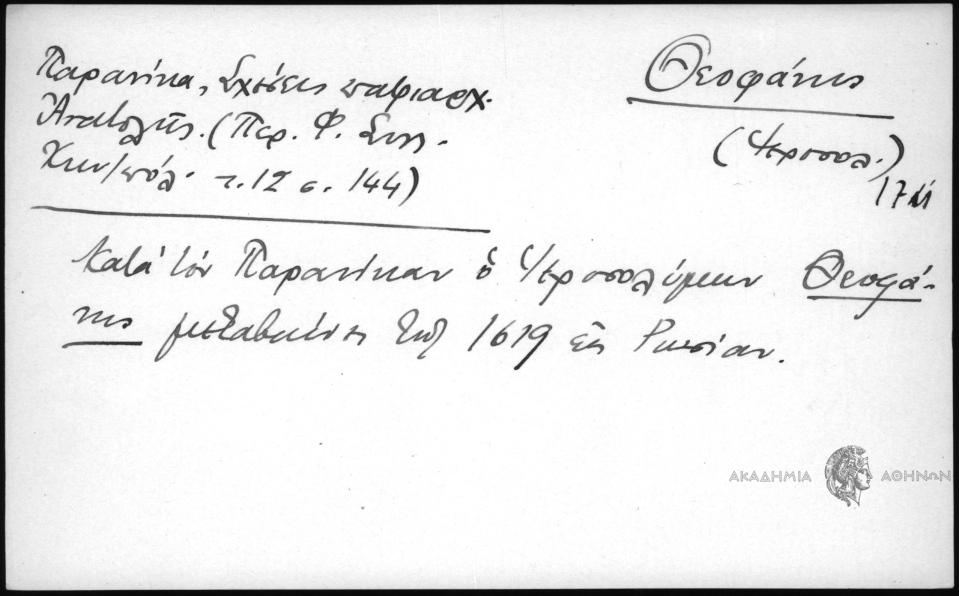 Παρανίκα, Σχέσεις πατριαρχ.
Ἀνατολῆς. (Περ. Φ. Συλ.
Κων/πόλ. τ. 12 σ. 144)
Θεοφάνης
(Ἱεροσολ.)
17
Κατὰ τὸν Παρανίκαν ὁ Ἱεροσολύμων Θεοφά-
νης μεταβαίνει τῷ 1619 εἰς Ρωσίαν.
ΑΚΑΔΗΜΙΑ ΑΘΗΝΩΝ